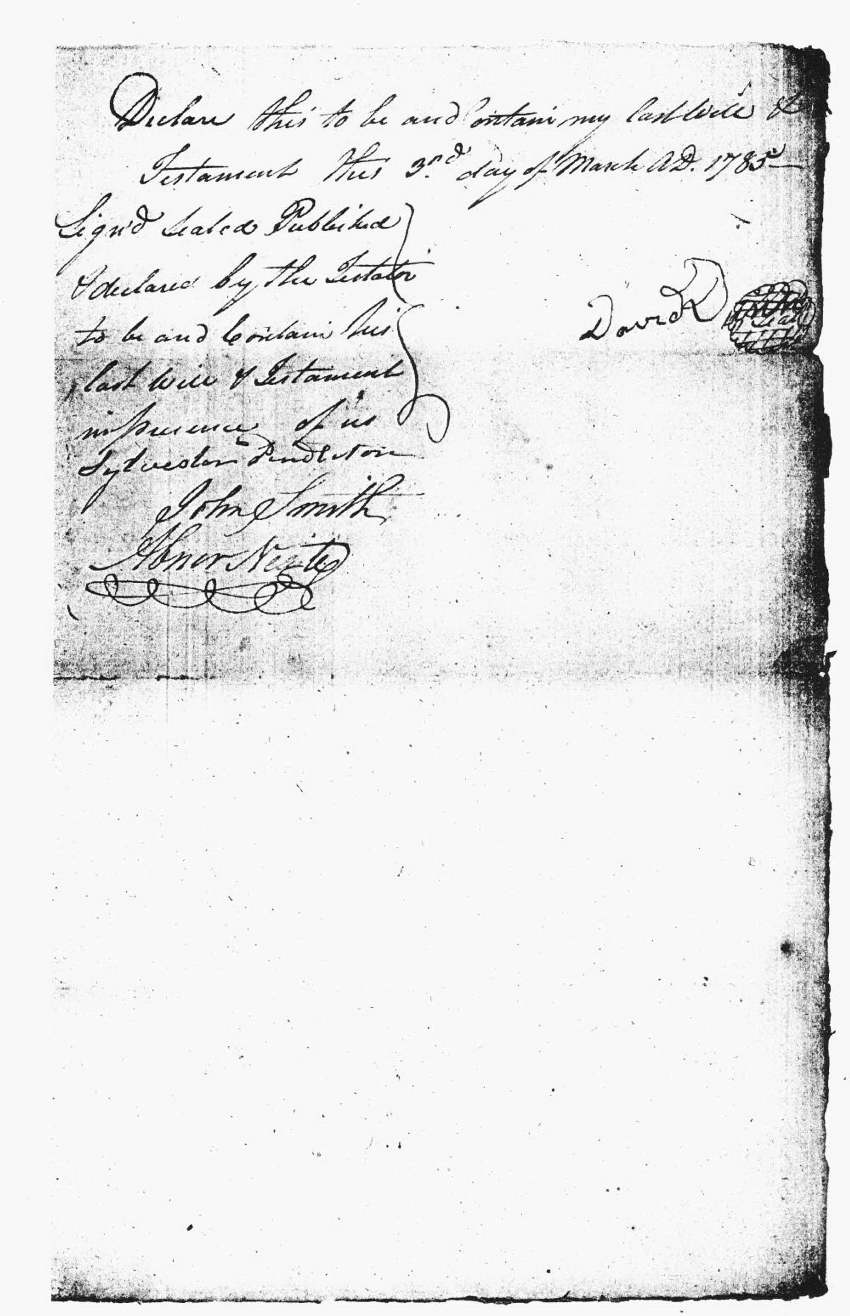 Declare this to be and Contain my last Will &
Testament this 3rd day of March AD. 1785
Sign'd Sealed Published
& declared by the Testator
to be and Contain his
David
Seal
last Will & Testament
in presence of us
Sylvester Pendleton
John Smith
Abner